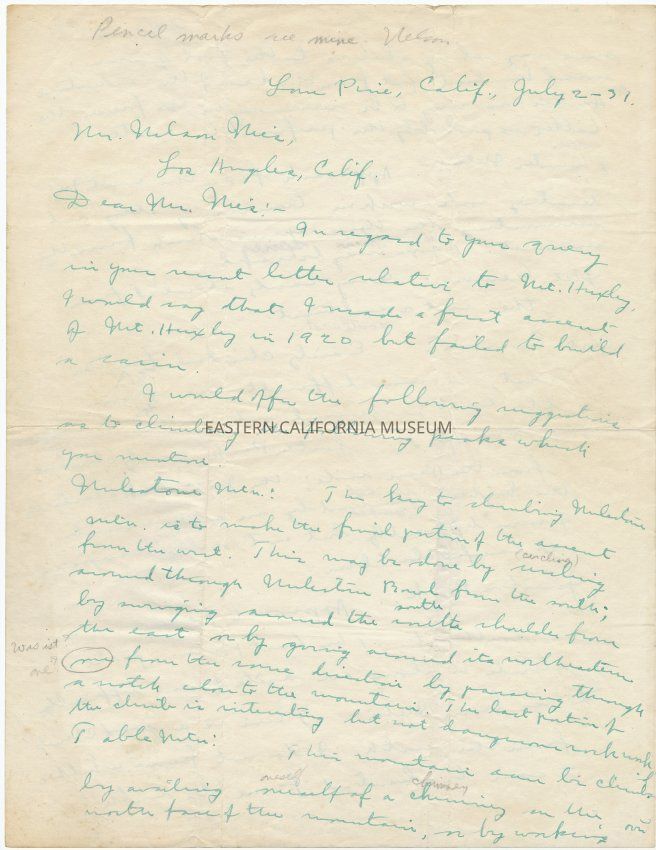 Pencil marks are mine. Nelson
Lone Pine, Calif., July 2-31.
Mr. Nelson Nies,
Los Angles, Calif.
Dear Mr. Nies:-
In regard to your query
in your recent letter relative to Mt. Huxley,
I would say that I made a first ascent
of Mt. Huxley in 1920 but failed to build
a cairn.
I would offer the following suggestions
as to climbing the following peaks which
you mention.
EASTERN CALIFORNIA MUSEUM
Milestone Mtn.: The key to climbing Milestone
mtn. is to make the final portion of the ascent
from the west. This may be done by circling
(circling)
around through Milestone Bowl from the south;
by swinging around the south shoulder from
south
the east or by going around its northeastern
Was ist
one?
from the same direction by passing through
a notch close to the mountain. The last portion of
the climb is interesting but not dangerous rock work
Table Mtn: This mountain can be climbed
oneself chimney
by availing oneself of a chimney on the
north face of the mountain, or by working